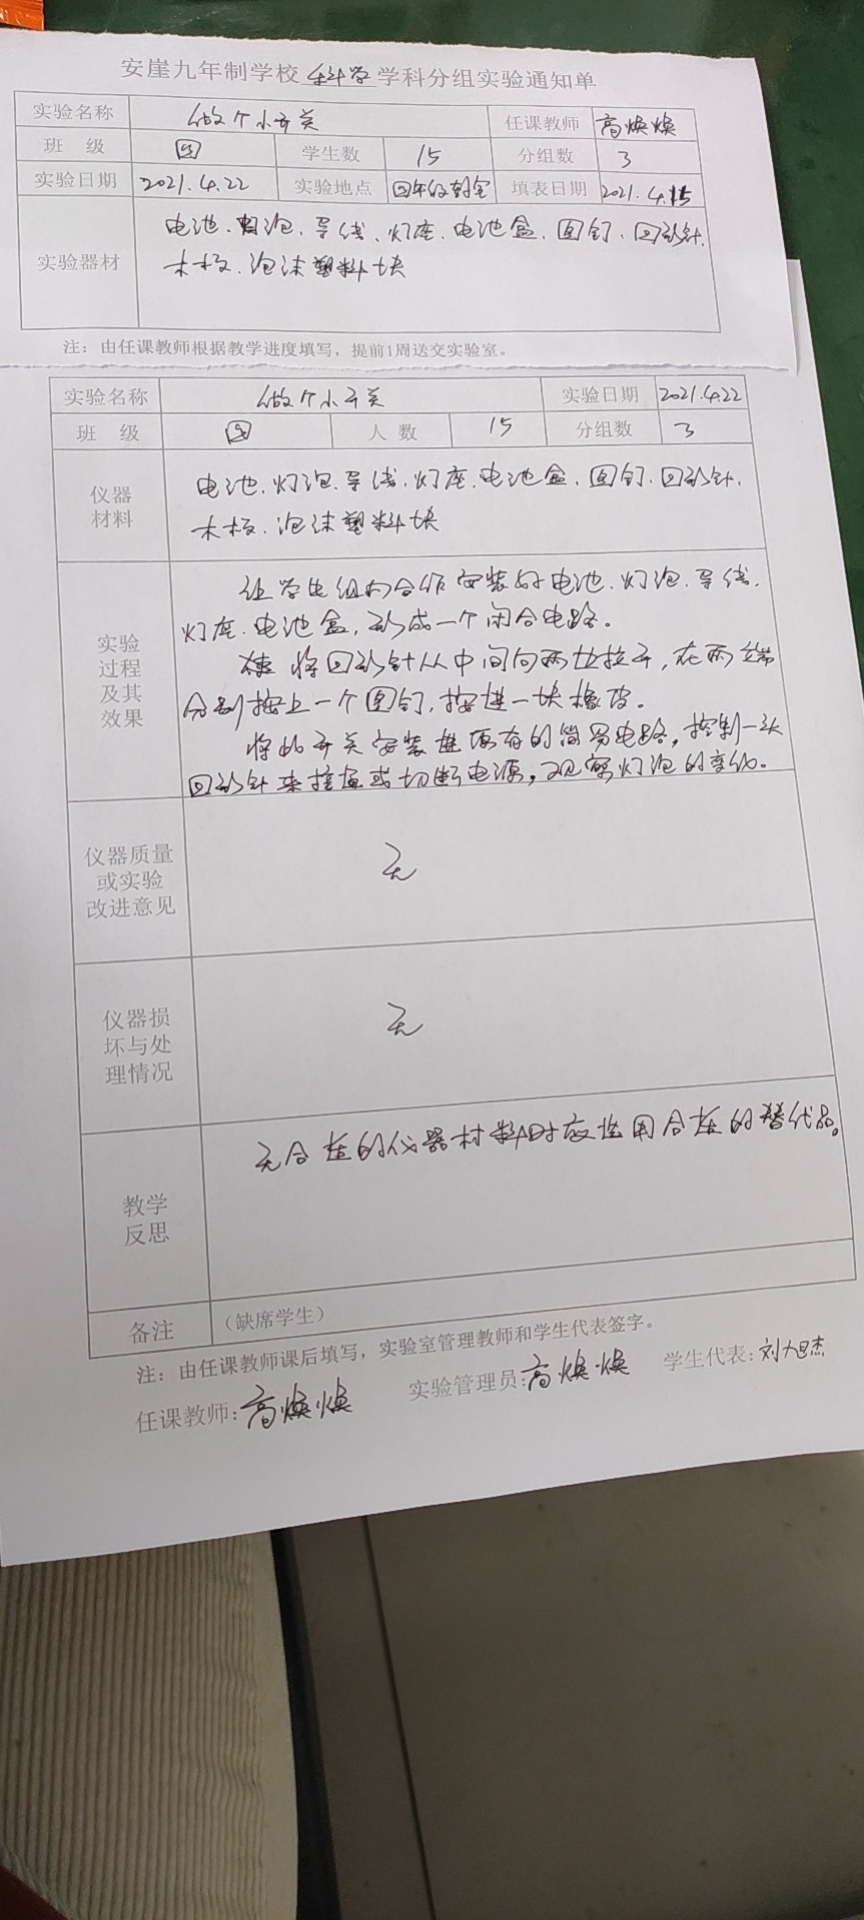 安崖九年制学校 科学 学科分组实验通知单
实验名称 做个小开关 任课教师 高焕焕
班 级 四 学生数 15 分组数 3
实验日期 2021.4.22 实验地点 四年级教室 填表日期 2021.4.15
实验器材 电池.灯泡.导线、灯座.电池盒.图钉.回形针.
木板.泡沫塑料块
注：由任课教师根据教学进度填写，提前1周送交实验室。
实验名称 做个小开关 实验日期 2021.4.22
班 级 四 人 数 15 分组数 3
仪器
材料
电池.灯泡.导线.灯座.电池盒.图钉.回形针.
木板.泡沫塑料块
实验
过程
及其
效果
让学生组内合作安装好电池.灯泡.导线.
灯座.电池盒，形成一个闭合电路。
将回形针从中间向两边拉开，在两端
分别按上一个图钉，按进一块橡皮。
将此开关安装进原有的简易电路，控制一头
回形针来接通或切断电源，观察灯泡的变化。
仪器质量
或实验
改进意见
无
仪器损
坏与处
理情况
无
教学
反思
无合适的仪器材料时应选用合适的替代品。
备注 （缺席学生）
注：由任课教师课后填写，实验室管理教师和学生代表签字。
任课教师：高焕焕 实验管理员：高焕焕 学生代表：刘杰